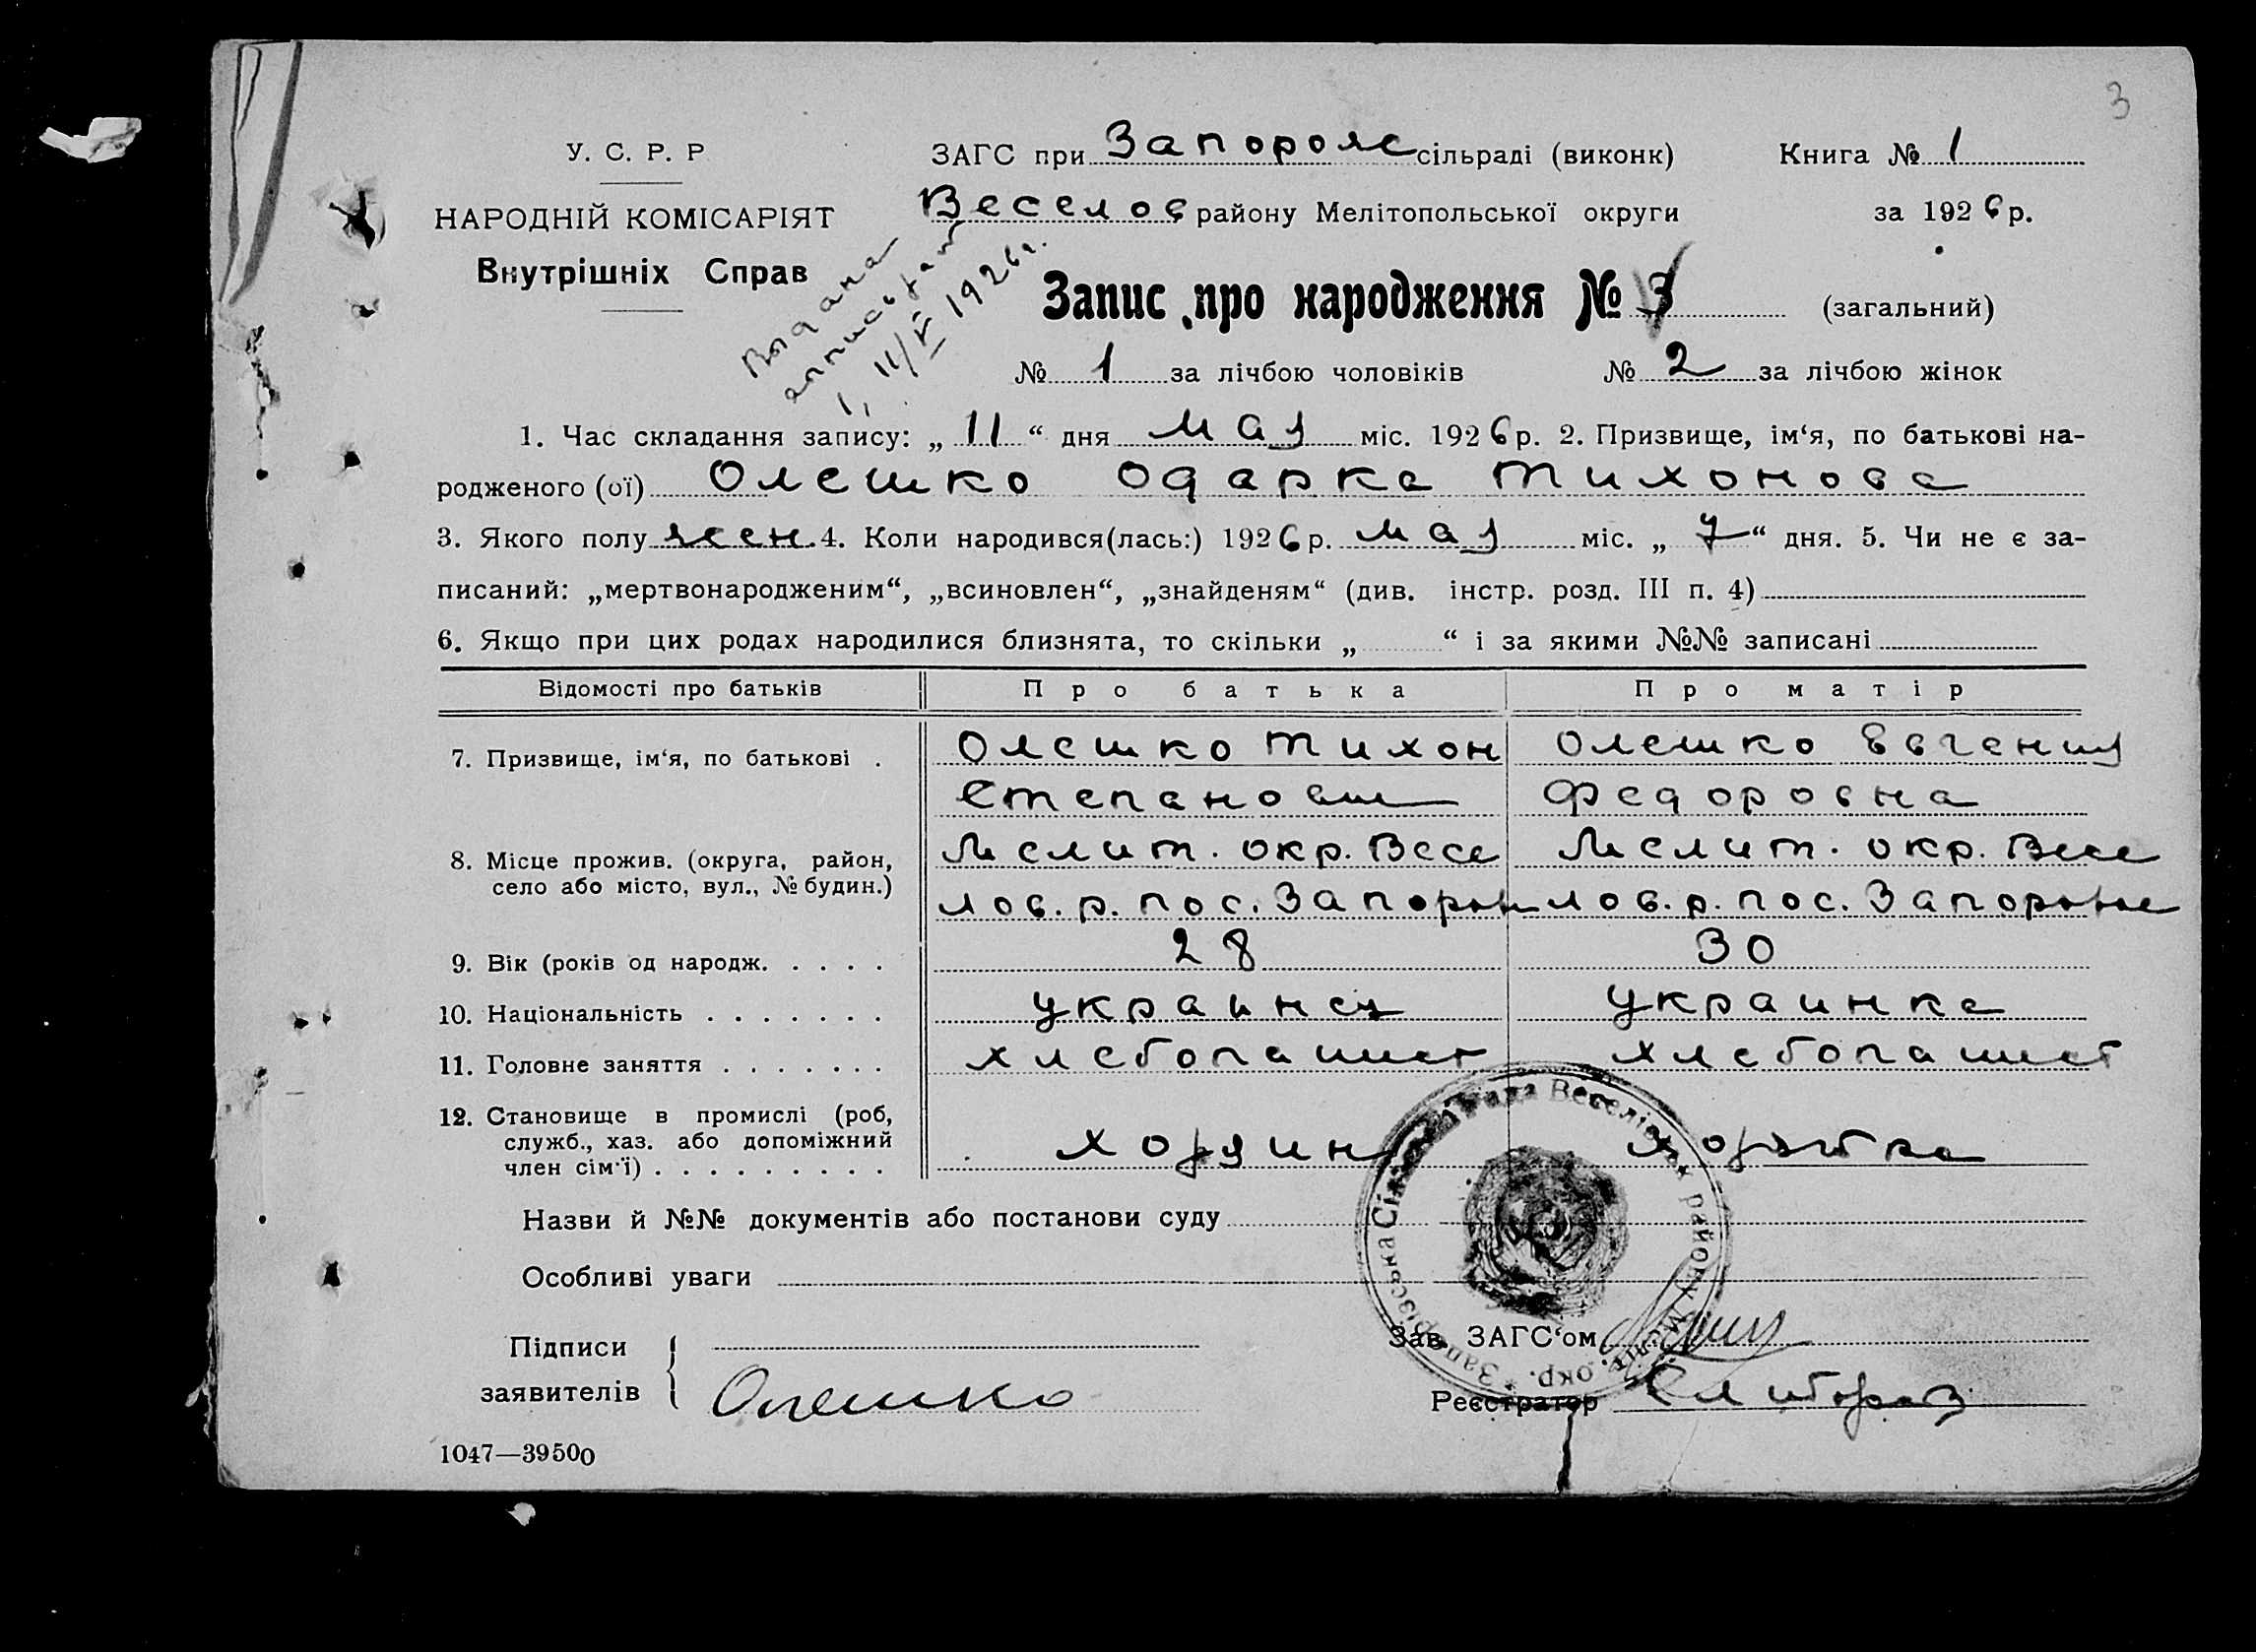 3
У. С. Р. Р
ЗАГС при Запорож сільраді (виконк)
Книга № 1
НАРОДНІЙ КОМІСАРІЯТ
Веселов району Мелітопольської округи
за 1926 р.
Внутрішніх Справ
Выдана
11/V 1926 г.
Запис про народження № 3 (загальний)
№ 1 за лічбою чоловіків № 2 за лічбою жінок
1. Час складання запису: „ 11 “ дня мая міс. 1926 р. 2. Призвище, ім‘я, по батькові на-
родженого (ої) Олешко Одарка Тихонова
3. Якого полу жен. 4. Коли народився(лась:) 1926 р. мая міс. „ 7 “ дня. 5. Чи не є за-
писаний: „мертвонародженим“, „всиновлен“, „знайденям“ (див. інстр. розд. III п. 4)
6. Якщо при цих родах народилися близнята, то скільки „ “ і за якими №№ записані
Відомості про батьків Про батька Про матір
7. Призвище, ім‘я, по батькові . Олешко Тихон Олешко Евгения
Степанович Федоровна
8. Місце прожив. (округа, район, Мелит. окр. Весе Мелит. окр. Весе
село або місто, вул., № будин.) лов. р. пос. Запорож лов. р. пос. Запорожье
9. Вік (років од народж. . . . . 28 30
10. Національність . . . . . . . украинец украинка
11. Головне заняття . . . . . . . хлебопашест хлебопашест
12. Становище в промислі (роб,
служб., хаз. або допоміжний
член сім‘ї) . . . . . . . . . хозяин хозяйка
Запорізська Сільська Рада Веселівськ району Меліт. окр.
Назви й №№ документів або постанови суду
Особливі уваги
Підписи
заявителів Олешко
Зав. ЗАГС‘ом
Реєстратор
1047—39500